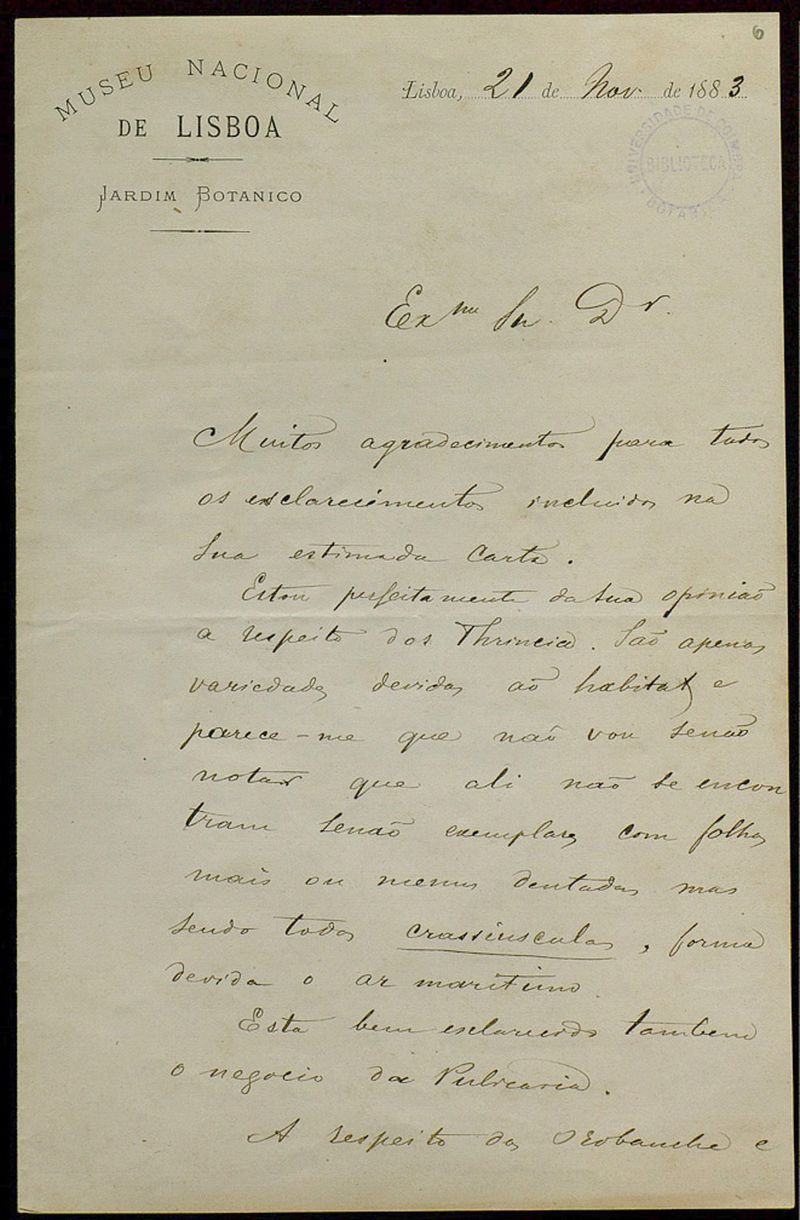 6
MUSEU NACIONAL
DE LISBOA
JARDIM BOTANICO
Lisboa, 21 de Nov. de 1883
UNIVERSIDADE DE COIMBRA
BIBLIOTECA
BOTANICA
Exmo Sr. Dr.
Muitos agradecimentos para todos
os esclarecimentos incluidos na
sua estimada carta.
Estou perfeitamente da sua opinião
a respeito dos Thrincia. São apenas
variedades devidas ao habitat e
parece-me que não vou senão
notar que ali não se encon
tram senão exemplares com folhas
mais ou menos dentadas mas
sendo todas crassiusculas, forma
devida o ar maritimo
Esta bem esclarecido tambem
o negocio da Pulicaria.
A respeito das Orobanche e